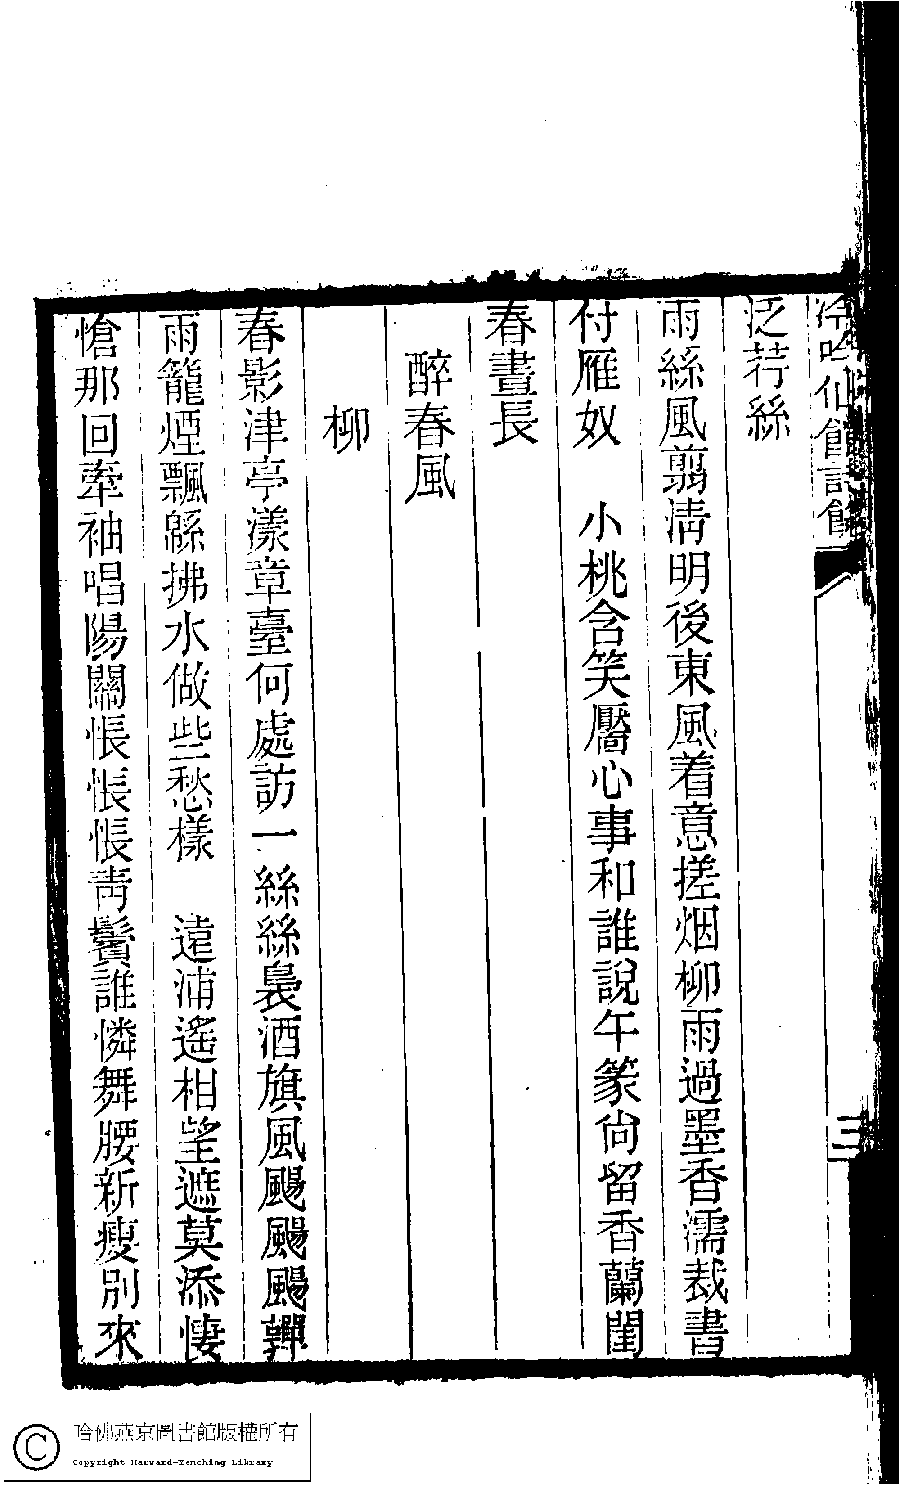 冷吟仙館詩餘
三
泛若絲
雨絲風翦淸明後東風着意搓烟柳雨過墨香濡裁書
付雁奴　小桃含笑靨心事和誰說午篆尙留香蘭閨
春晝長
醉春風
柳
春影津亭漾章臺何處訪一絲絲裊酒旗風颺颺颺嚲
雨籠煙飄緜拂水做些愁樣　遠浦遙相望遮莫添悽
愴那回牽袖唱陽關悵悵悵靑鬢誰憐舞腰新瘦別來
哈佛燕京圖書館版權所有
Copyright Harvard-Yenching Library